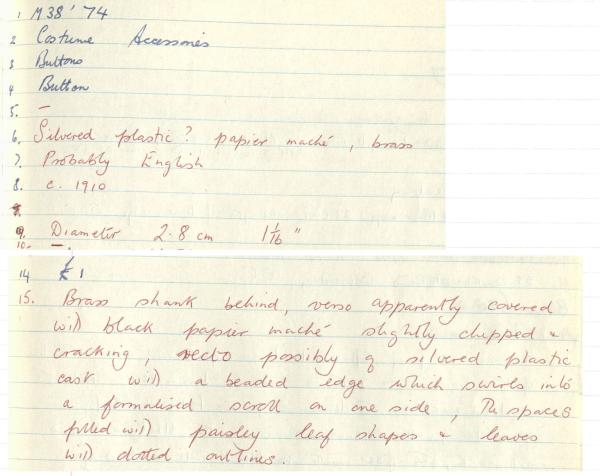 1 M38'74
2 Costume Accessories
3 Buttons
4 Button
5. –
6. Silvered plastic? papier maché, brass
7. Probably English
8. c. 1910
9. Diameter 2.8 cm 1 1/16"
10. –
14 £1
15. Brass shank behind, verso apparently covered
with black papier maché slightly chipped &
cracking, recto possibly of silvered plastic
cast with a beaded edge which swirls into
a formalised scroll on one side, The spaces
filled with paisley leaf shapes & leaves
with dotted outlines.